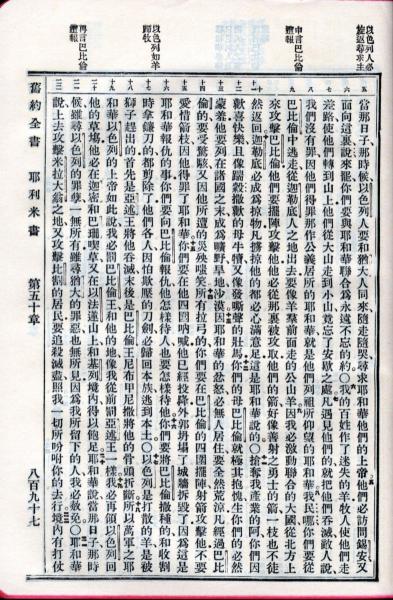 以色列人必
旋返尋求主
中言巴比倫
遭報
以色列如羊
歸牧
再言巴比倫
遭報
當那日子、那時候、以色列人要和猶大人同來、隨走隨哭、尋求耶和華他們的上帝、他們必訪問錫安、又
面向這裏、說、來罷、你們要與耶和華聯合為永遠不忘的約、我的百姓作了迷失的羊、牧人使他們走
差路、使他們轉到山上、他們從大山走到小山、竟忘了安歇之處、凡遇見他們的、就把他們吞滅、敵人說
我們沒有罪、因他們得罪那作公義居所的耶和華、就是他們列祖所仰望的耶和華、我民哪、你們要從
巴比倫中逃走、從迦勒底人之地出去、要像羊羣前面走的公山羊、因我必激動聯合的大國從北方上
來攻擊巴比倫、他們要擺陣攻擊他、他必從那裏被攻取、他們的箭好像善射之勇士的箭、一枝也不徒
然返回、迦勒底必成為掠物、凡擄掠他的都必心滿意足、這是耶和華說的、○搶奪我產業的阿、你們因
歡喜快樂、且像踹穀撒歡的母牛犢、又像發嘶聲的壯馬、你們的母巴比倫就極其抱愧、生你們的必然
蒙羞、他要列在諸國之末、成為曠野、旱地、沙漠、因耶和華的忿怒、必無人居住、要全然荒涼、凡經過巴比
倫的要受驚駭、又因他所遭的災殃嗤笑、所有拉弓的、你們要在巴比倫的四圍擺陣、射箭攻擊他、不要
愛惜箭枝、因他得罪了耶和華、你們要在他四圍吶喊、他已經投降、外郭坍塌了、城牆拆毀了、因為這是
耶和華報仇的事、你們要向巴比倫報仇、他怎樣待人、也要怎樣待他、你們要將巴比倫撒種的、和收割
時拿鐮刀的、都剪除了、他們各人因怕欺壓的刀劍、必歸回本族、逃到本土、○以色列是打散的羊、是被
獅子趕出的、首先是亞述王將他吞滅、末後是巴比倫王尼布甲尼撒將他的骨頭折斷、所以萬軍之耶
和華以色列的上帝如此說、我必罰巴比倫王、和他的地、像我從前罰亞述王一樣、我必再領以色列回
他的草場、他必在迦密和巴珊喫草、又在以法蓮山上和基列境內得以飽足、耶和華說、當那日子、那時
候、雖尋以色列的罪孽、一無所有、雖尋猶大的罪惡、也無所見、因為我所留下的人、我必赦免、○耶和華
說、上去攻擊米拉大翁之地、又攻擊比割的居民、要追殺滅盡、照我一切所吩咐你的去行、境內有打仗
舊約全書　耶利米書　第五十章　八百九十七